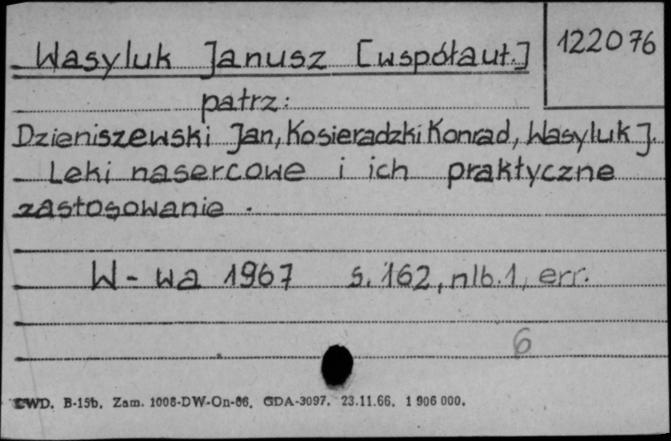 Wasyluk Janusz [współaut.]
122076
patrz:
Dzieniszewski Jan, Kosieradzki Konrad, Wasyluk J.
Leki nasercowe i ich praktyczne
zastosowanie.
W-wa 1967 s. 162, nlb. 1, err.
6
CWD. B-15b. Zam. 1008-DW-On-66. GDA-3097. 23.11.66. 1 906 000.